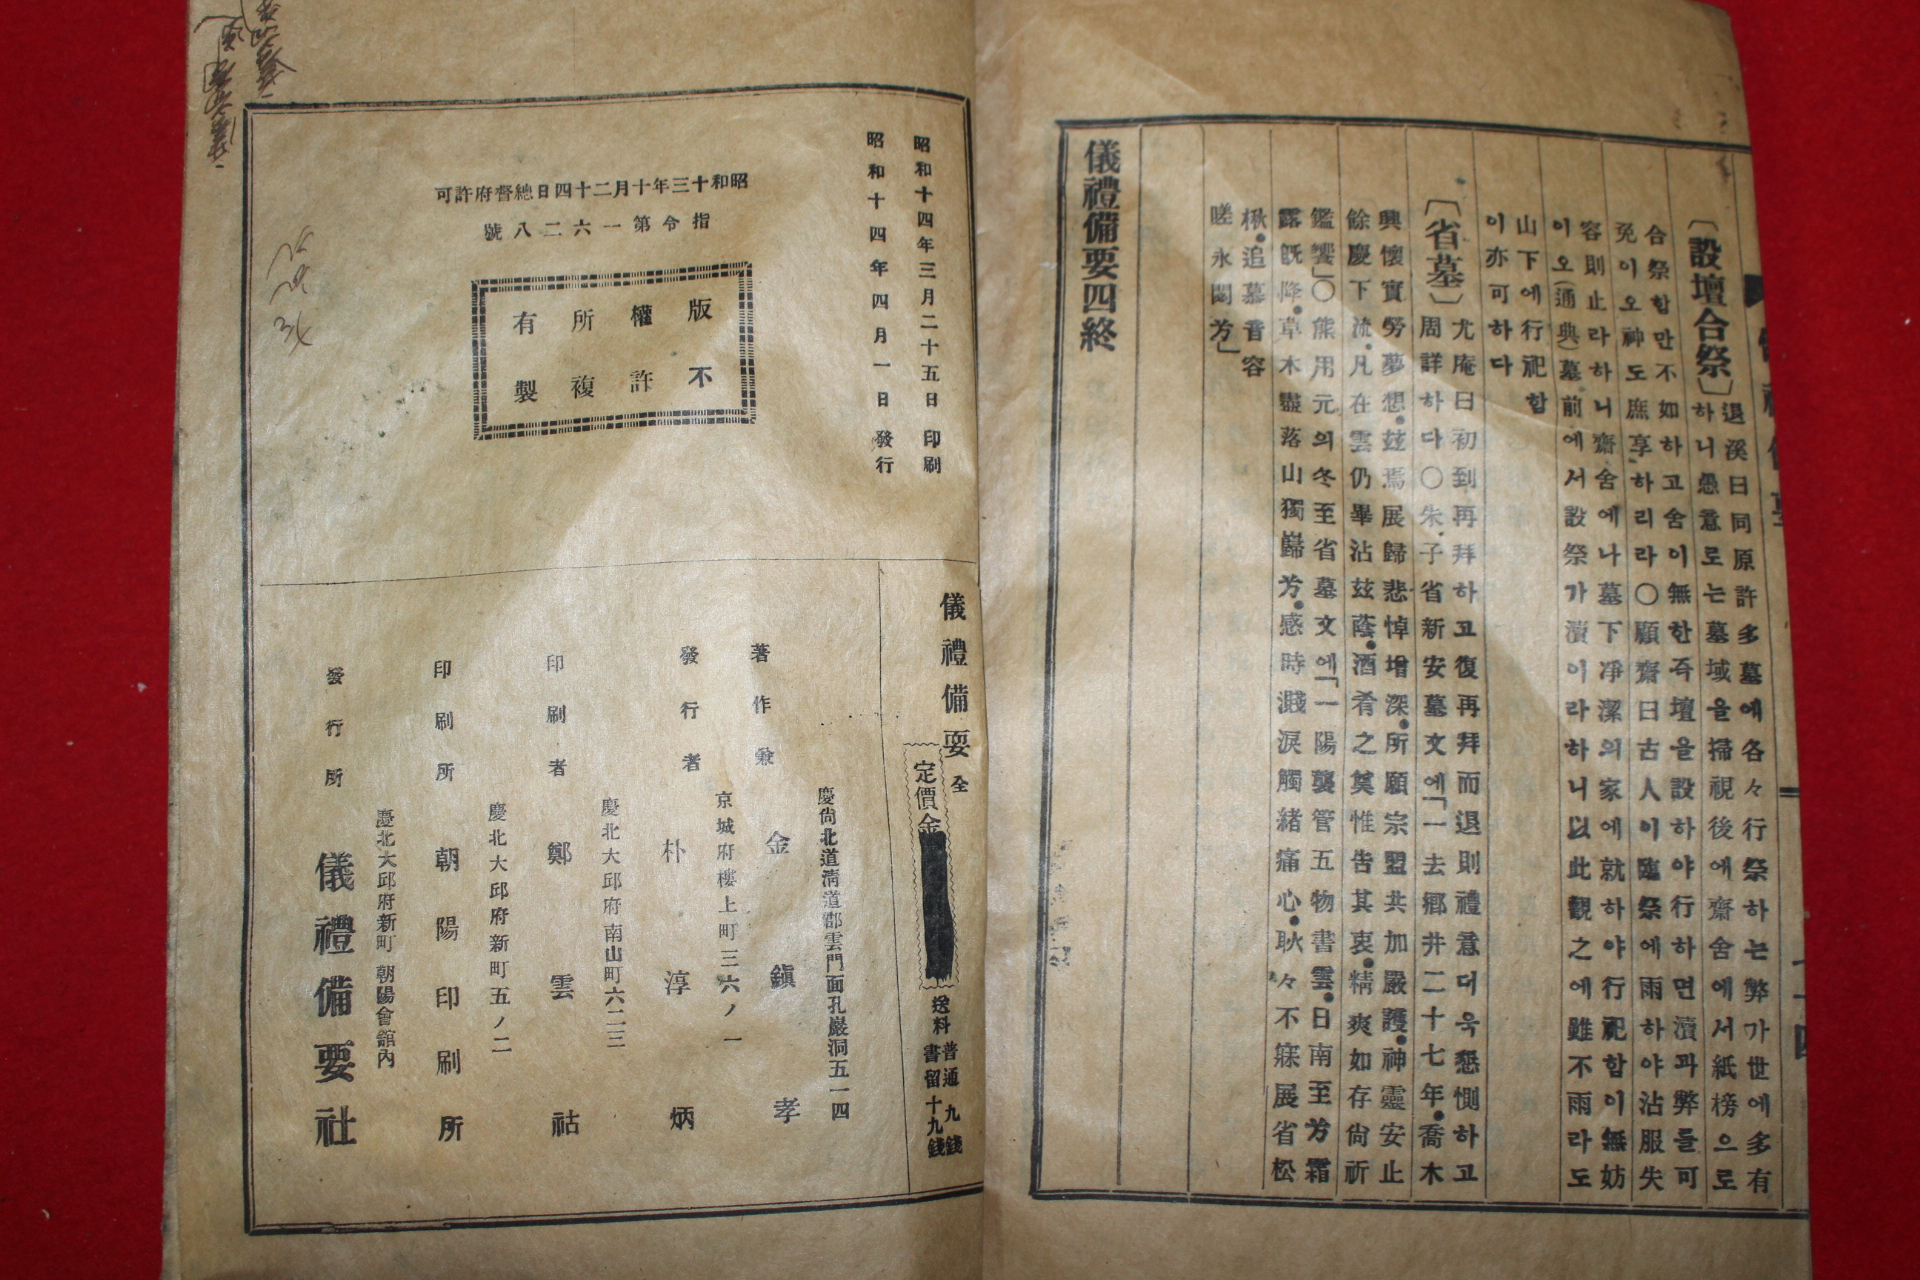 〔設壇合祭〕退溪曰同原許多墓에各々行祭하는弊가世에多有
하니愚意로는墓域을掃視後에齋舍에서紙榜으로
合祭함만不如하고舍이無한즉壇을設하야行하면瀆과弊를可
免이오神도庶享하리라〇顧齋曰古人이臨祭에雨하야沾服失
容則止라하니齋舍에나墓下凈潔의家에就하야行祀함이無妨
이오(通典)墓前에서設祭가瀆이라하니以此觀之에雖不雨라도
山下에行祀함
이亦可하다
〔省墓〕尤庵曰初到再拜하고復再拜而退則禮意더욱懇惻하고
周詳하다〇朱子省新安墓文에「一去鄕井二十七年喬木
興懷實勞夢想玆焉展歸悲悼增深所願宗盟共加嚴護神靈安止
餘慶下流凡在雲仍畢沾玆蔭酒肴之奠惟告其衷精爽如存尙祈
鑑饗」〇熊用元의冬至省墓文에「一陽襲管五物書雲日南至芳霜
露旣降草木盡落山獨巋芳感時濺淚觸緖痛心耿々不寐展省松
楸追慕音容
嗟永閟芳」
儀禮備要四終
昭和十四年三月二十五日印刷
昭和十四年四月一日發行
昭和十三年十月二十四日總督府許可
指令第一六二八號
版權所有
不許複製
儀禮備要 全
定價金
送料 普通 九錢
書留 十九錢
慶尙北道淸道郡雲門面孔巖洞五一四
著作兼 金鎭孝
京城府樓上町三六ノ一
發行者 朴淳炳
慶北大邱府南山町六二三
印刷者 鄭雲祜
慶北大邱府新町五ノ二
印刷所 朝陽印刷所
慶北大邱府新町 朝陽會舘內
發行所 儀禮備要社